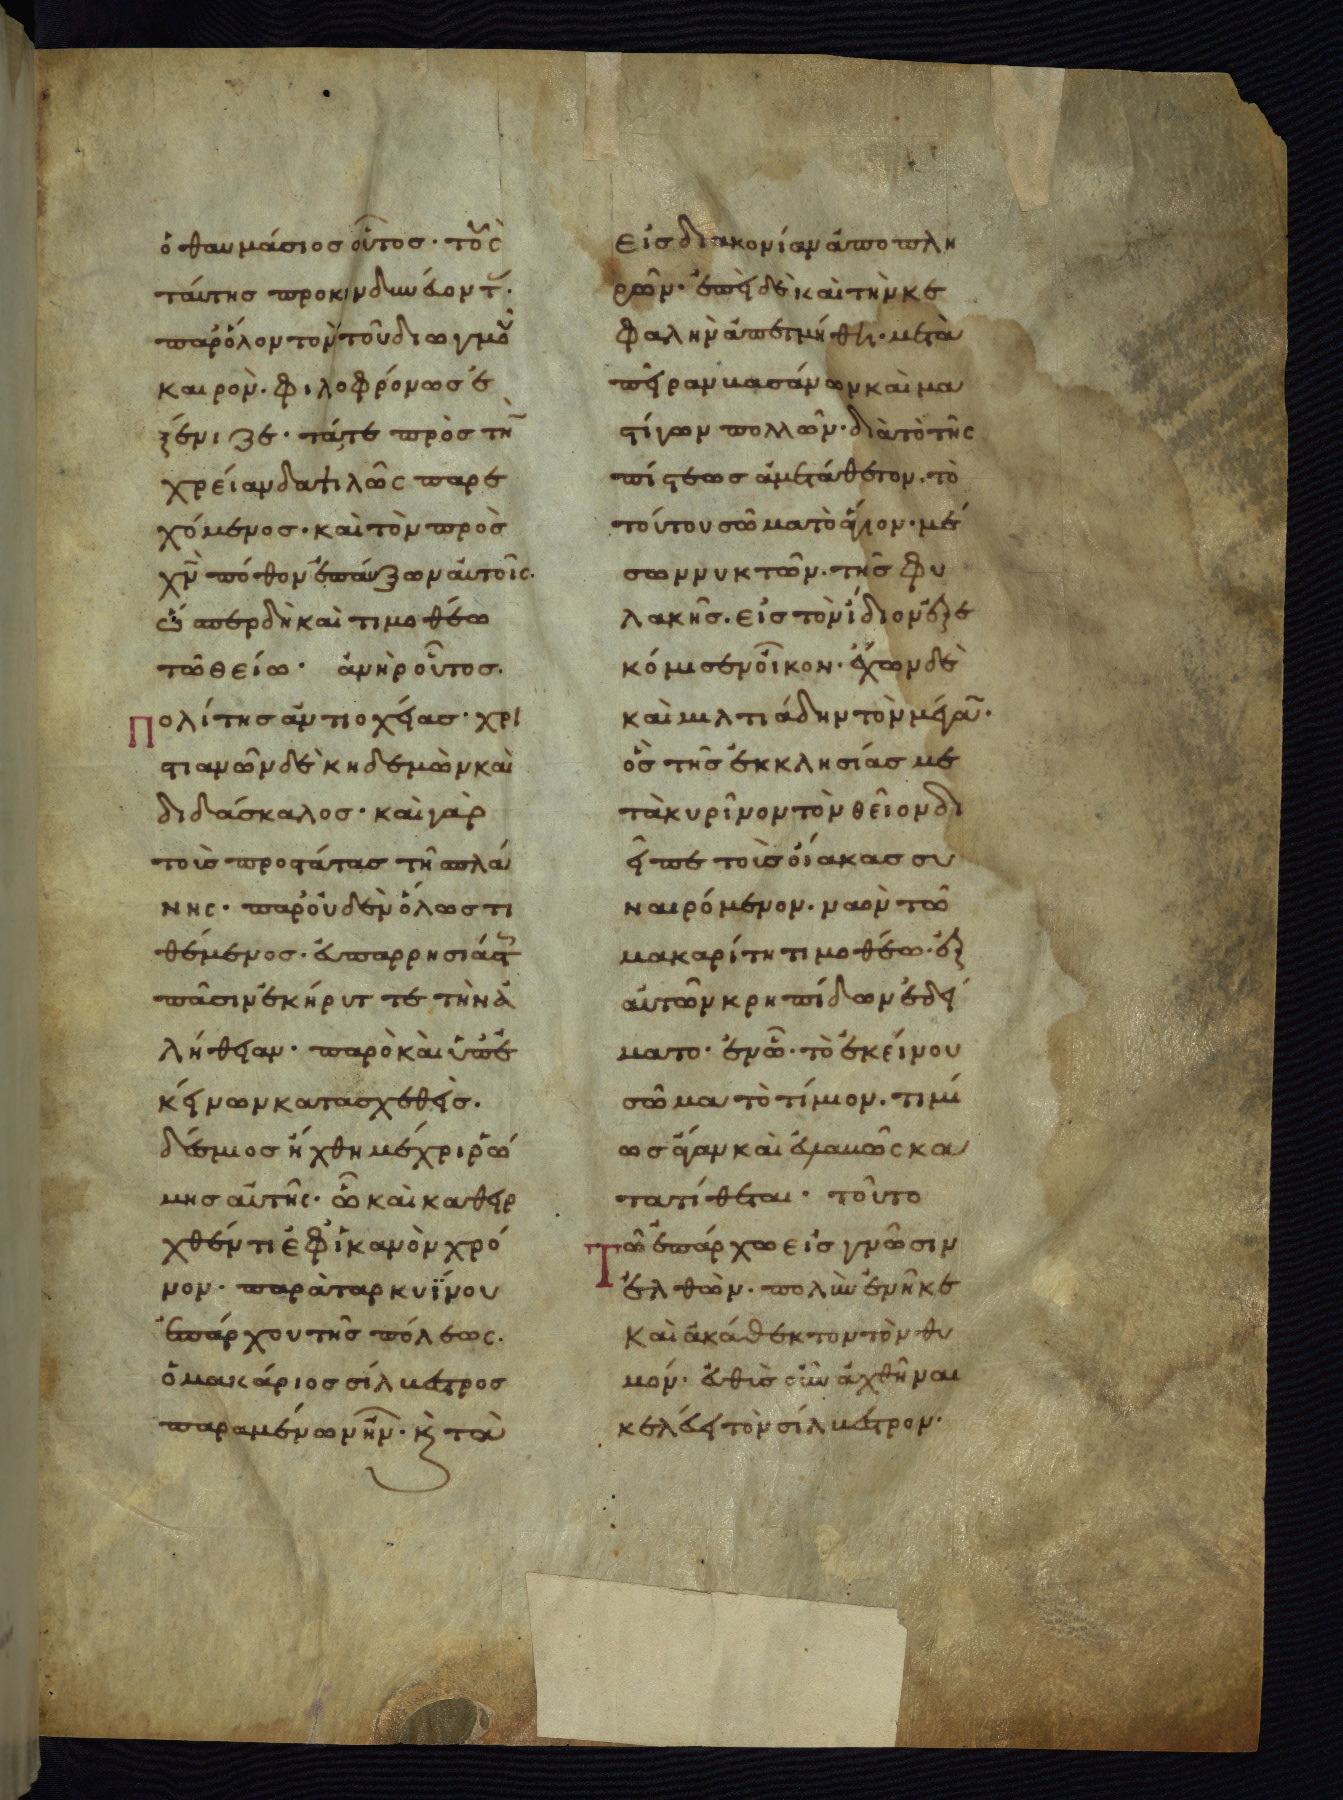 ὁ θαυμάσιος οὗτος· τοὺς
ταύτης προκινδυνεύοντ(ας)·
παρ' ὅλον τὸν τοῦ διωγμοῦ
καιρὸν. φιλοφρόνως ἐ
ξένιζε· τά τε πρὸς τὴν
χρείαν δαψιλῶς παρε
χόμενος· καὶ τὸν πρὸς
χν̅ πόθον ἐπαύξων αὐτοῖς.
ὥσπερ δὴ καὶ τιμοθέω
τῶ θείω· ἀνὴρ οὗτος.
Πολίτης ἀντιοχείας· χρι
στιανῶν δὲ κηδεμὼν καὶ
διδάσκαλος· καὶ γὰρ
τοὺς προστάτας τῆς πλά
νης· παρ' οὐδὲν ὅλως τι
θέμενος· εὐπαρρησιάστ(ως)
πᾶσιν ἐκήρυττε τὴν ἀ
λήθειαν· παρὸ καὶ ὑπ' ἐ
κείνων κατασχεθεὶς.
δέσμιος ἤχθη μέχρι ῥώ
μης αὐτῆς· ὧ καὶ καθειρ
χθέντι ἐφ' ἱκανὸν χρό
νον· παρὰ ταρκυΐνου
ἐπάρχου τῆς πόλεως.
ὁ μακάριος σίλβεστρος
παραμένων ἦν· κ(αὶ) τὰ
εἰς διακονίαν ἀποπλη
ρῶν· ἐπεὶ δὲ καὶ τὴν κε
φαλὴν ἀπετμήθη· μετὰ
πεῖραν βασάνων καὶ μα
στίγων πολλῶν· διὰ τὸ τῆς
πίστεως ἀμετάθετον. τὸ
τούτου σῶμα τὸ ἅγιον· μέ
σων νυκτῶν. τῆς φυ
λακῆς. εἰς τὸν ἴδιον ἐξε
κόμισεν οἶκον· ἔχων δὲ
καὶ μιλτιάδην τὸν μέγαν·
ὃς τῆς ἐκκλησίας με
τὰ κυρῖνον τὸν θεῖον δι
εῖπε τοὺς οἴακας συ
ναιρόμενον. ναὸν τῶ
μακαρίτη τιμοθέω· ἐξ
αὐτῶν κρηπίδων ἐδεί
ματο· ἐν ὧ· τὸ ἐκείνου
σῶμα τὸ τίμιον. τιμί
ως ἄγαν καὶ εὐλαβῶς κα
τατίθεται· τοῦτο
Τῶ ἐπάρχω εἰς γνῶσιν
ἐλθὼν. πολὺν ἐνῆκε
καὶ ἀκάθεκτον τὸν θυ
μόν· εὐθὺς οὖν ἀχθῆναι
κελεύει τὸν σίλβεστρον·